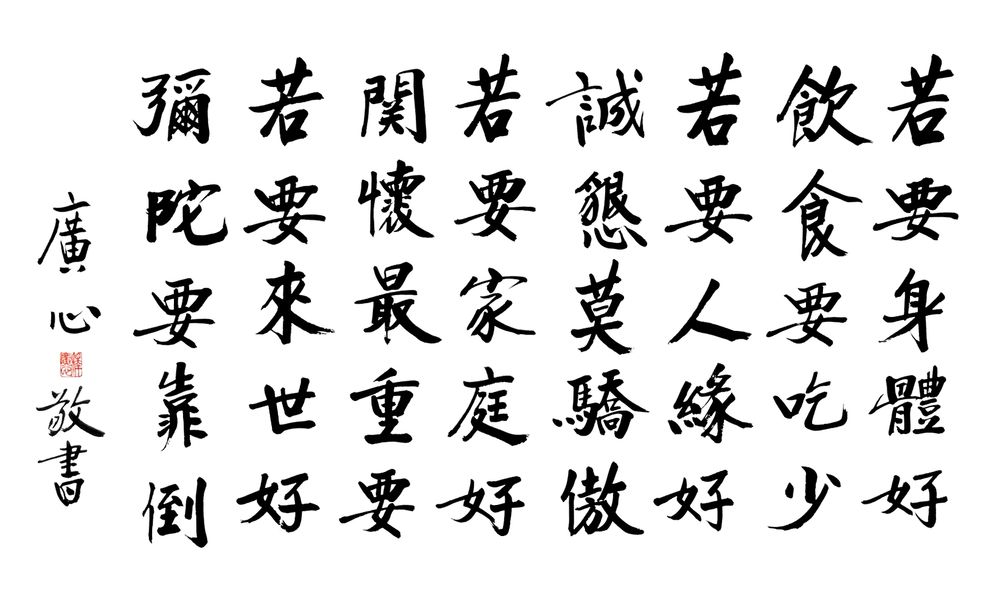 若要身體好
飲食要吃少
若要人緣好
誠懇莫驕傲
若要家庭好
関懷最重要
若要來世好
彌陀要靠倒
廣心敬書